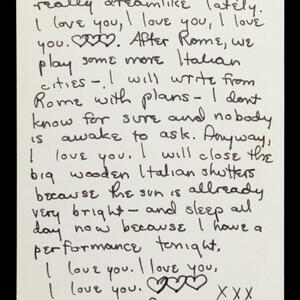 really dreamlike lately.
I love you, I love you, I love
you.♡♡♡. After Rome, we
play some more Italian
cities – I will write from
Rome with plans – I dont
know for sure and nobody
is awake to ask. Anyway,
I love you. I will close the
big wooden Italian shutters
because the sun is allready
very bright – and sleep all
day now because I have a
performance tonight.
I love you. I love you,
I love you. ♡♡♡
XXX